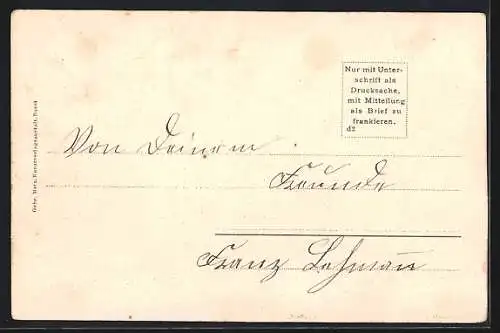 Nur mit Unter-
schrift als
Drucksache,
mit Mitteilung
als Brief zu
frankieren.
d2
Von Deinem
Freunde
Franz Lehmann
Gebr. Metz, Kunstverlagsanstalt, Basel